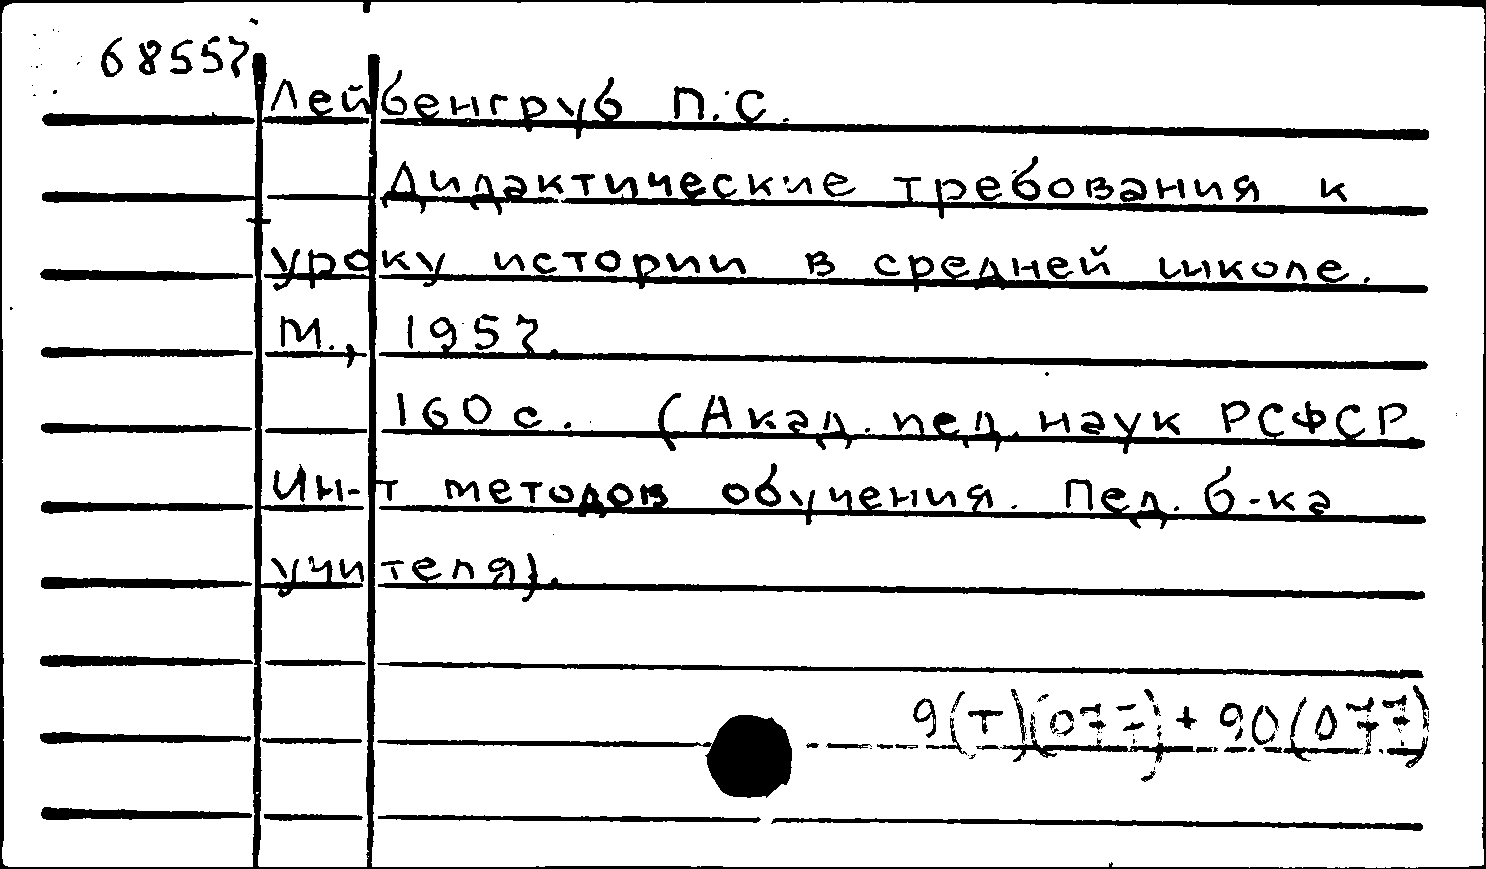 68557
Лейбенгруб П.С.
Дидактические требования к
уроку истории в средней школе.
М., 1957.
160 с. (Акад. пед. наук РСФСР.
Ин-т методов обучения. Пед. б-ка
учителя).
9(Т)(077) + 90(077)